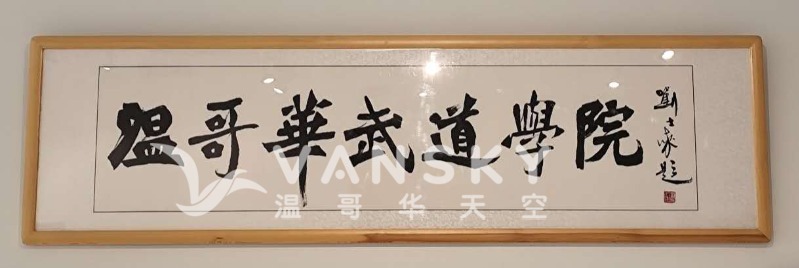 溫哥華武道學院
劉士家題
VANSKY
温哥华天空